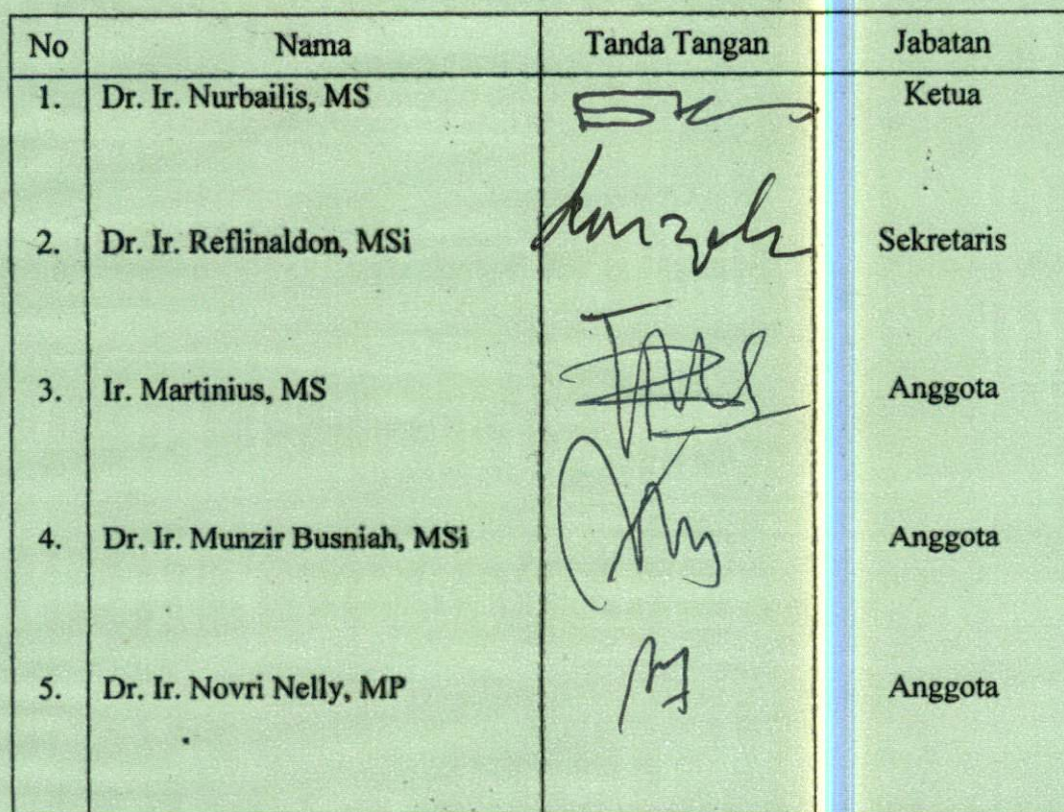 No Nama Tanda Tangan Jabatan
1. Dr. Ir. Nurbailis, MS Ketua
2. Dr. Ir. Reflinaldon, MSi Sekretaris
3. Ir. Martinius, MS Anggota
4. Dr. Ir. Munzir Busniah, MSi Anggota
5. Dr. Ir. Novri Nelly, MP Anggota